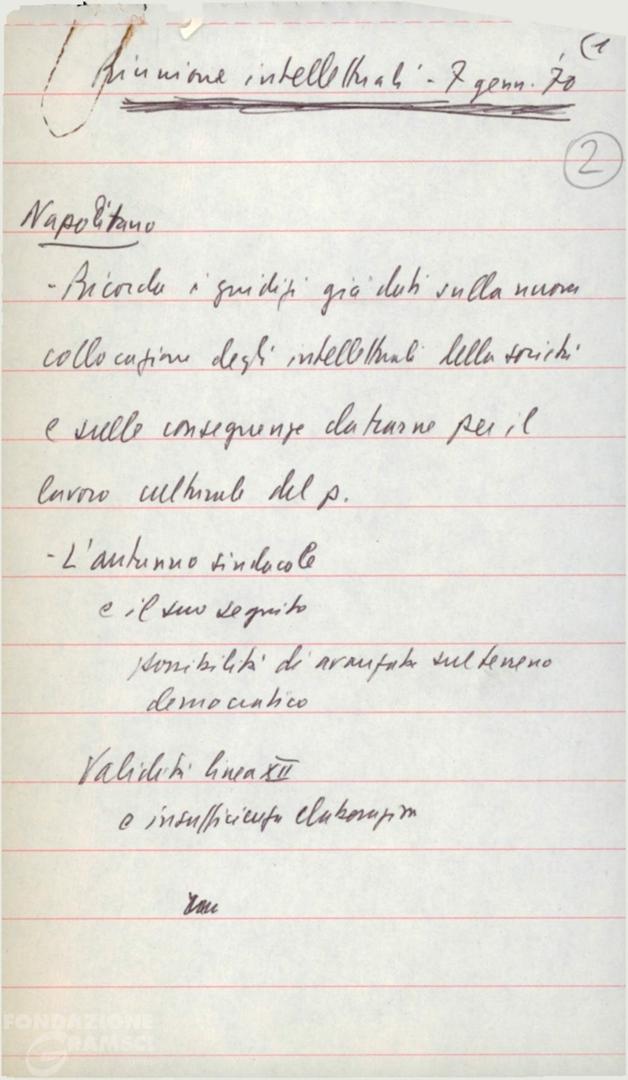 (1
Riunione intellettuali - 7 genn. '70
2
Napolitano
- Ricorda i giudizi già dati sulla nuova
collocazione degli intellettuali della società
e sulle conseguenze da trarne per il
lavoro culturale del p.
- L'autunno sindacale
e il suo seguito
possibilità di avanzata sul terreno
democratico
Validità linea XII
e insufficienza elaborazione
FONDAZIONE
GRAMSCI